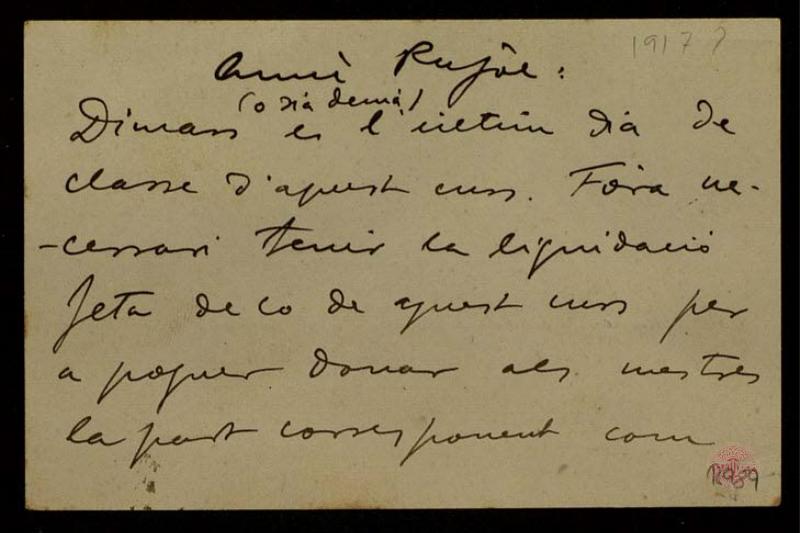 1917?
Amic Pujol:
(o sia demà)
Dimars es l'ultim dia de
classe d'aquest curs. Fòra ne-
-cessari tenir la liquidació
feta de co de aquest curs per
a poguer donar als mestres
la part corresponent com